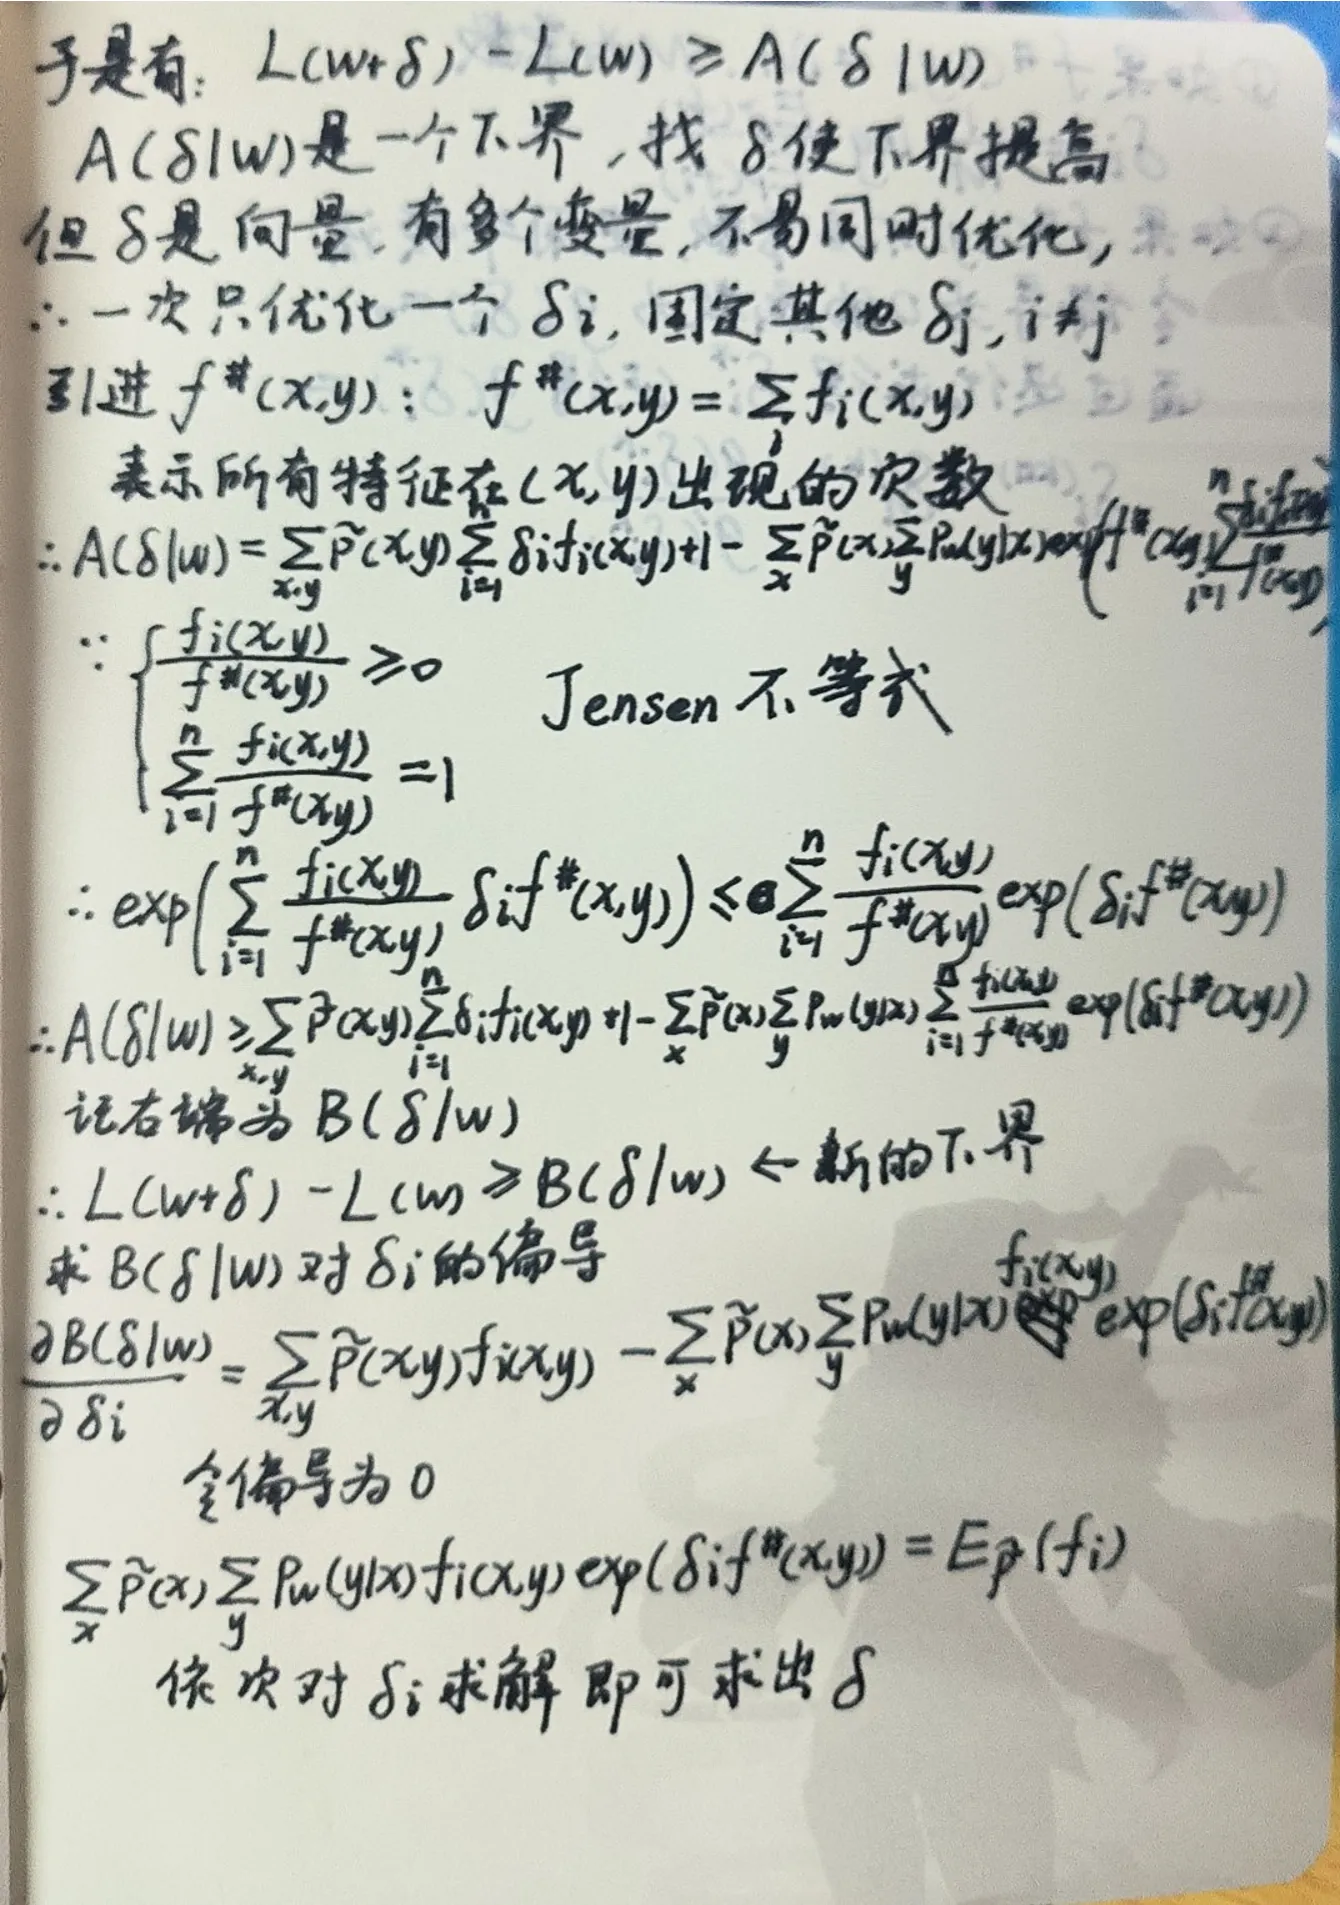 于是有: L(w+δ) - L(w) ≥ A(δ|w)
A(δ|w)是一个下界,找 δ使下界提高
但δ是向量,有多个变量,不易同时优化,
∴一次只优化一个 δi, 固定其他 δj, i≠j
引进 f#(x,y): f#(x,y) = ∑_i fi(x,y)
表示所有特征在(x,y)出现的次数
∴A(δ|w) = ∑_{x,y} P̃(x,y) ∑_{i=1}^n δifi(x,y)+1 - ∑_x P̃(x) ∑_y Pw(y|x) exp(f#(x,y) ∑_{i=1}^n δifi(x,y)/f#(x,y))
∵ { fi(x,y)/f#(x,y) ≥ 0
Jensen 不等式
∑_{i=1}^n fi(x,y)/f#(x,y) = 1
∴ exp(∑_{i=1}^n fi(x,y)/f#(x,y) δif#(x,y)) ≤ ∑_{i=1}^n fi(x,y)/f#(x,y) exp(δif#(x,y))
∴A(δ|w) ≥ ∑_{x,y} P̃(x,y) ∑_{i=1}^n δifi(x,y)+1 - ∑_x P̃(x) ∑_y Pw(y|x) ∑_{i=1}^n fi(x,y)/f#(x,y) exp(δif#(x,y))
记右端为 B(δ|w)
∴ L(w+δ) - L(w) ≥ B(δ|w) ← 新的下界
求 B(δ|w) 对 δi 的偏导
∂B(δ|w)/∂δi = ∑_{x,y} P̃(x,y)fi(x,y) - ∑_x P̃(x) ∑_y Pw(y|x) fi(x,y) exp(δif#(x,y))
令偏导为0
∑_x P̃(x) ∑_y Pw(y|x) fi(x,y) exp(δif#(x,y)) = E_P̃(fi)
依次对 δi 求解 即可求出 δ